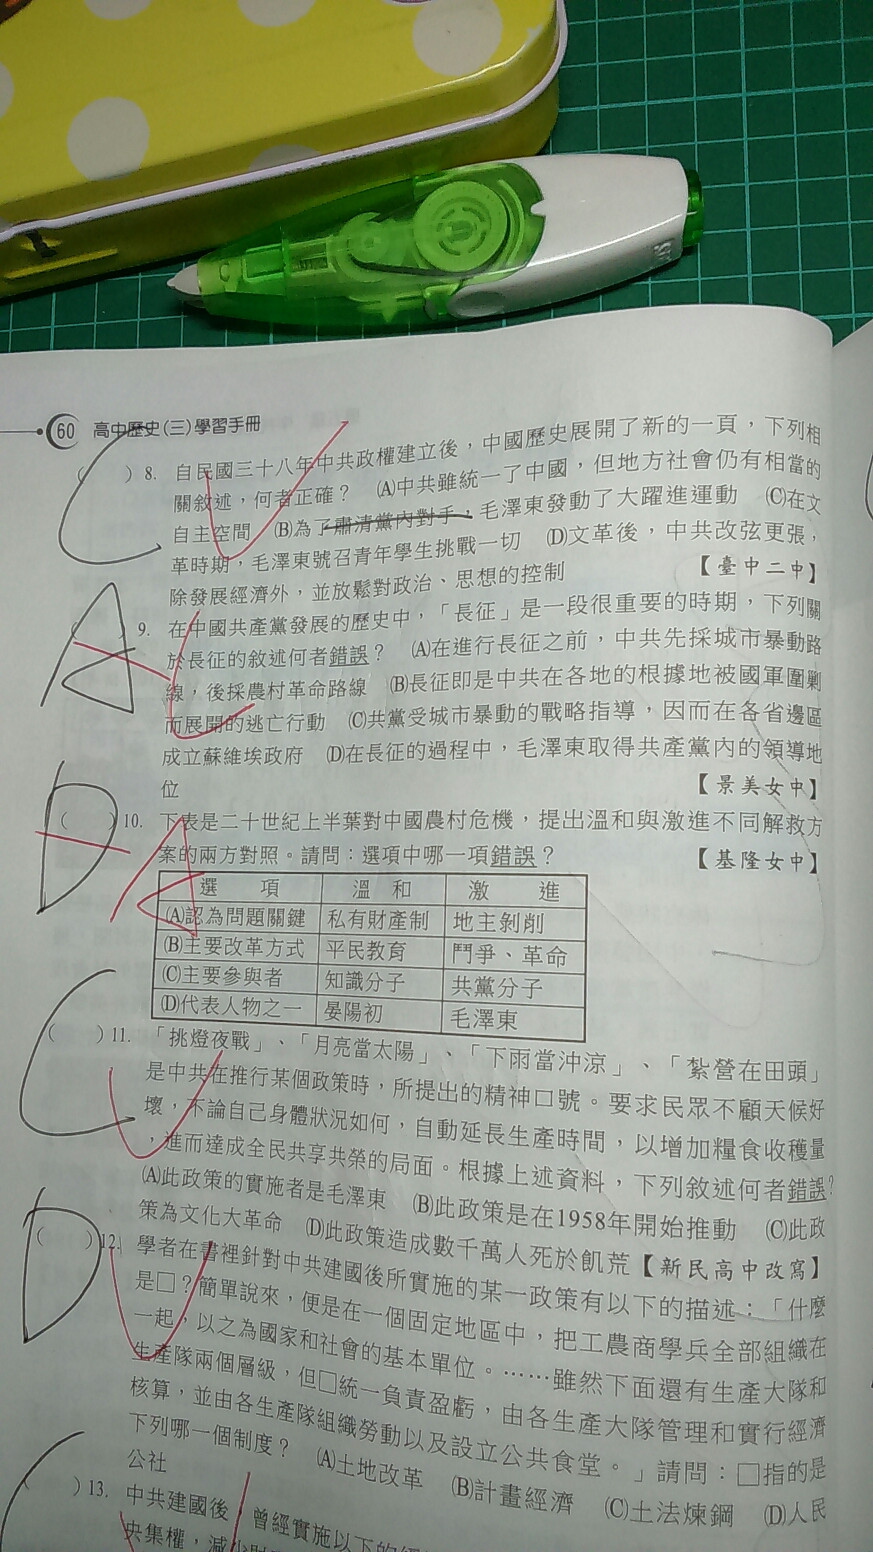 60 高中歷史(三)學習手冊
C ( ) 8. 自民國三十八年中共政權建立後，中國歷史展開了新的一頁，下列相
關敘述，何者正確？ (A)中共雖統一了中國，但地方社會仍有相當的
自主空間 (B)為了肅清黨內對手，毛澤東發動了大躍進運動 (C)在文
革時期，毛澤東號召青年學生挑戰一切 (D)文革後，中共改弦更張，
除發展經濟外，並放鬆對政治、思想的控制 【臺中二中】
A C ( ) 9. 在中國共產黨發展的歷史中，「長征」是一段很重要的時期，下列關
於長征的敘述何者錯誤？ (A)在進行長征之前，中共先採城市暴動路
線，後採農村革命路線 (B)長征即是中共在各地的根據地被國軍圍剿
而展開的逃亡行動 (C)共黨受城市暴動的戰略指導，因而在各省邊區
成立蘇維埃政府 (D)在長征的過程中，毛澤東取得共產黨內的領導地
位 【景美女中】
D A ( ) 10. 下表是二十世紀上半葉對中國農村危機，提出溫和與激進不同解救方
案的兩方對照。請問：選項中哪一項錯誤？ 【基隆女中】
選 項 溫 和 激 進
(A)認為問題關鍵 私有財產制 地主剝削
(B)主要改革方式 平民教育 鬥爭、革命
(C)主要參與者 知識分子 共黨分子
(D)代表人物之一 晏陽初 毛澤東
C ( ) 11. 「挑燈夜戰」、「月亮當太陽」、「下雨當沖涼」、「紮營在田頭」
是中共在推行某個政策時，所提出的精神口號。要求民眾不顧天候好
壞，不論自己身體狀況如何，自動延長生產時間，以增加糧食收穫量
，進而達成全民共享共榮的局面。根據上述資料，下列敘述何者錯誤？
(A)此政策的實施者是毛澤東 (B)此政策是在1958年開始推動 (C)此政
策為文化大革命 (D)此政策造成數千萬人死於飢荒【新民高中改寫】
D ( ) 12. 學者在書裡針對中共建國後所實施的某一政策有以下的描述：「什麼
是□？簡單說來，便是在一個固定地區中，把工農商學兵全部組織在
一起，以之為國家和社會的基本單位。……雖然下面還有生產大隊和
生產隊兩個層級，但□統一負責盈虧，由各生產大隊管理和實行經濟
核算，並由各生產隊組織勞動以及設立公共食堂。」請問：□指的是
下列哪一個制度？ (A)土地改革 (B)計畫經濟 (C)土法煉鋼 (D)人民
公社
C ( ) 13. 中共建國後，曾經實施以下的
央集權，減